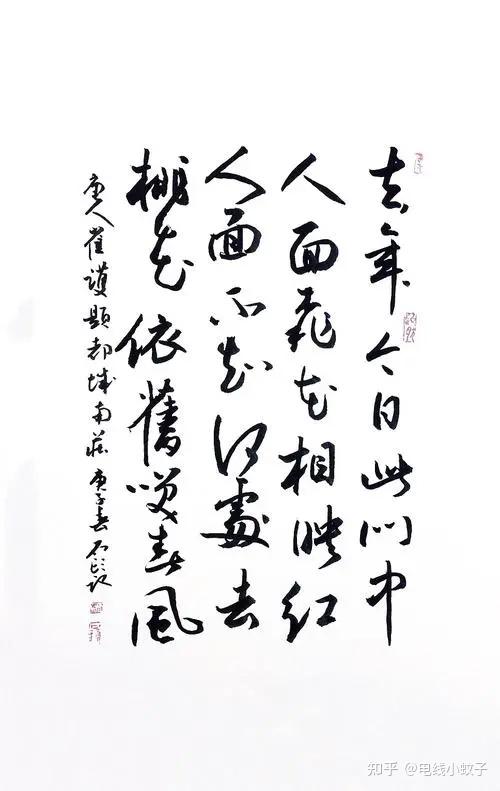 去年今日此门中
人面桃花相映红
人面不知何處去
桃花依舊咲春風
唐人崔護題都城南莊 庚子春
知乎 @电线小蚊子